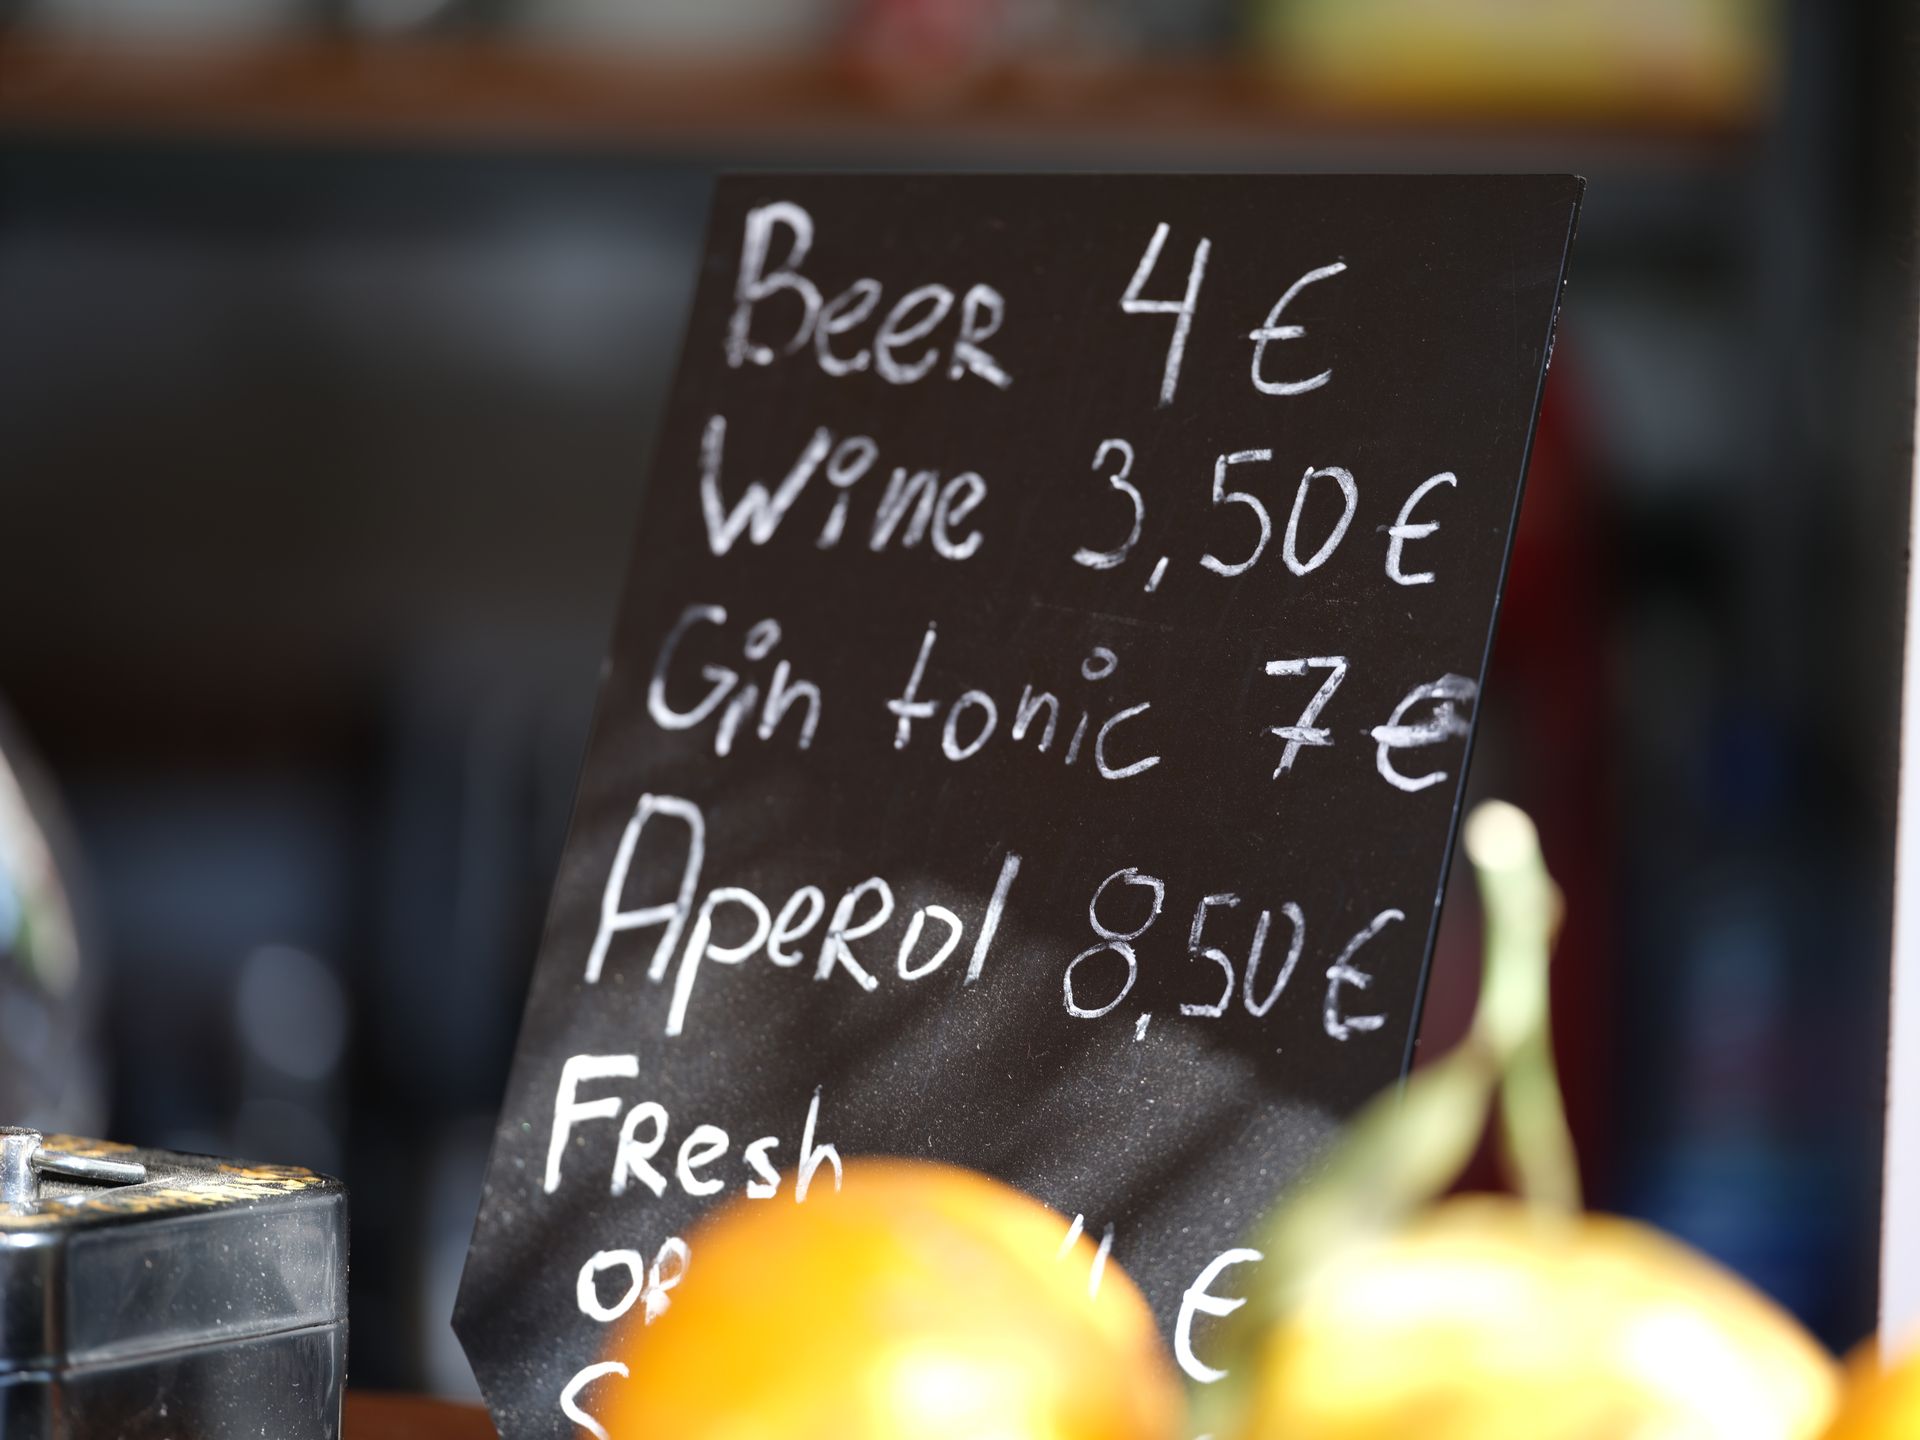 Beer 4 €
Wine 3,50 €
Gin tonic 7 €
Aperol 8,50 €
Fresh
€